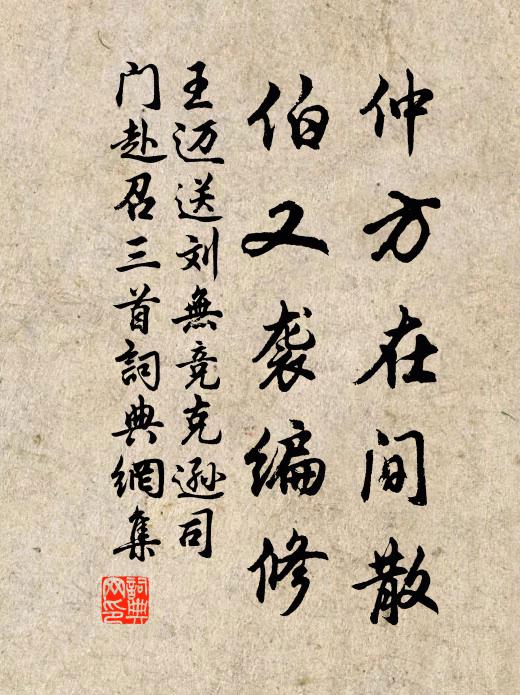 仲方在间散
伯又袭编修
王迈送刘無竞克逊司
门赴召三首詞典網集
詞典网印